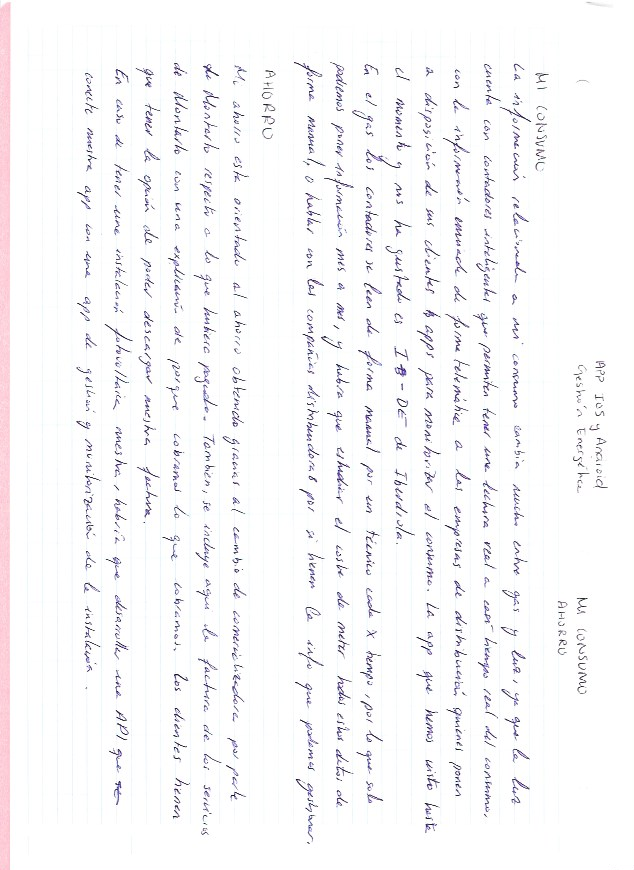 APP IOS y Android
Gestión Energética
MI CONSUMO
AHORRO
MI CONSUMO
La información relacionada a mi consumo cambia mucho entre gas y luz, ya que la luz
cuenta con contadores inteligentes que permiten tener una lectura real a casi tiempo real del consumo,
con la información enviada de forma telemática a las empresas de distribución quienes ponen
a disposición de sus clientes apps para monitorizar el consumo. La app que hemos visto hasta
el momento y nos ha gustado es I-DE de Iberdrola.
En el gas los contadores se leen de forma manual por un técnico cada X tiempo, por lo que solo
podemos poner información mes a mes, y habra que estudiar el coste de meter todos estos datos de
forma manual, o hablar con las compañias distribuidoras por si tienen la info que podamos gestionar.
AHORRO
Mi ahorro esta orientado al ahorro obtenido gracias al cambio de comercializadora por parte
de Montarto respecto a lo que hubiera pagado. Tambien, se incluye aqui la factura de los servicios
de Montarto con una explicación de porque cobramos lo que cobramos. Los clientes tienen
que tener la opción de poder descargar nuestra factura.
En caso de tener una instalación fotovoltaica nuestra, habría que desarrollar una API que
conecte nuestra app con una app de gestión y monitorización de la instalación.